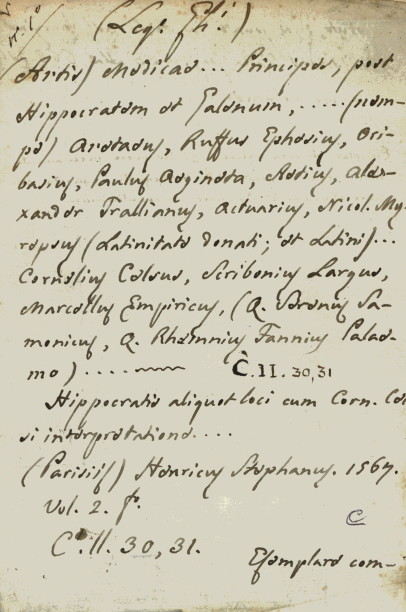 (Leg. Eh.)
(Artis) Medicae... Principes, post
Hippocratem et Galenum, ..... (nem-
pe) Aretaeus, Ruffus Ephesius, Ori-
basius, Paulus Aegineta, Aetius, Alex-
xander Trallianus, Actuarius, Nicol. My-
repsus (Latinitate donati; et Latini)...
Cornelius Celsus, Scribonius Largus,
Marcellus Empiricus, (Q. Serenus Sa-
monicus, Q. Rhemnius Fannius Palae-
mo) .....
C.II. 30,31
Hippocratis aliquot loci cum Corn. Cel
si interpretatione....
(Parisiis) Henricus Stephanus. 1567.
Vol. 2. fo.
C
C.II. 30, 31.
Exemplare com-